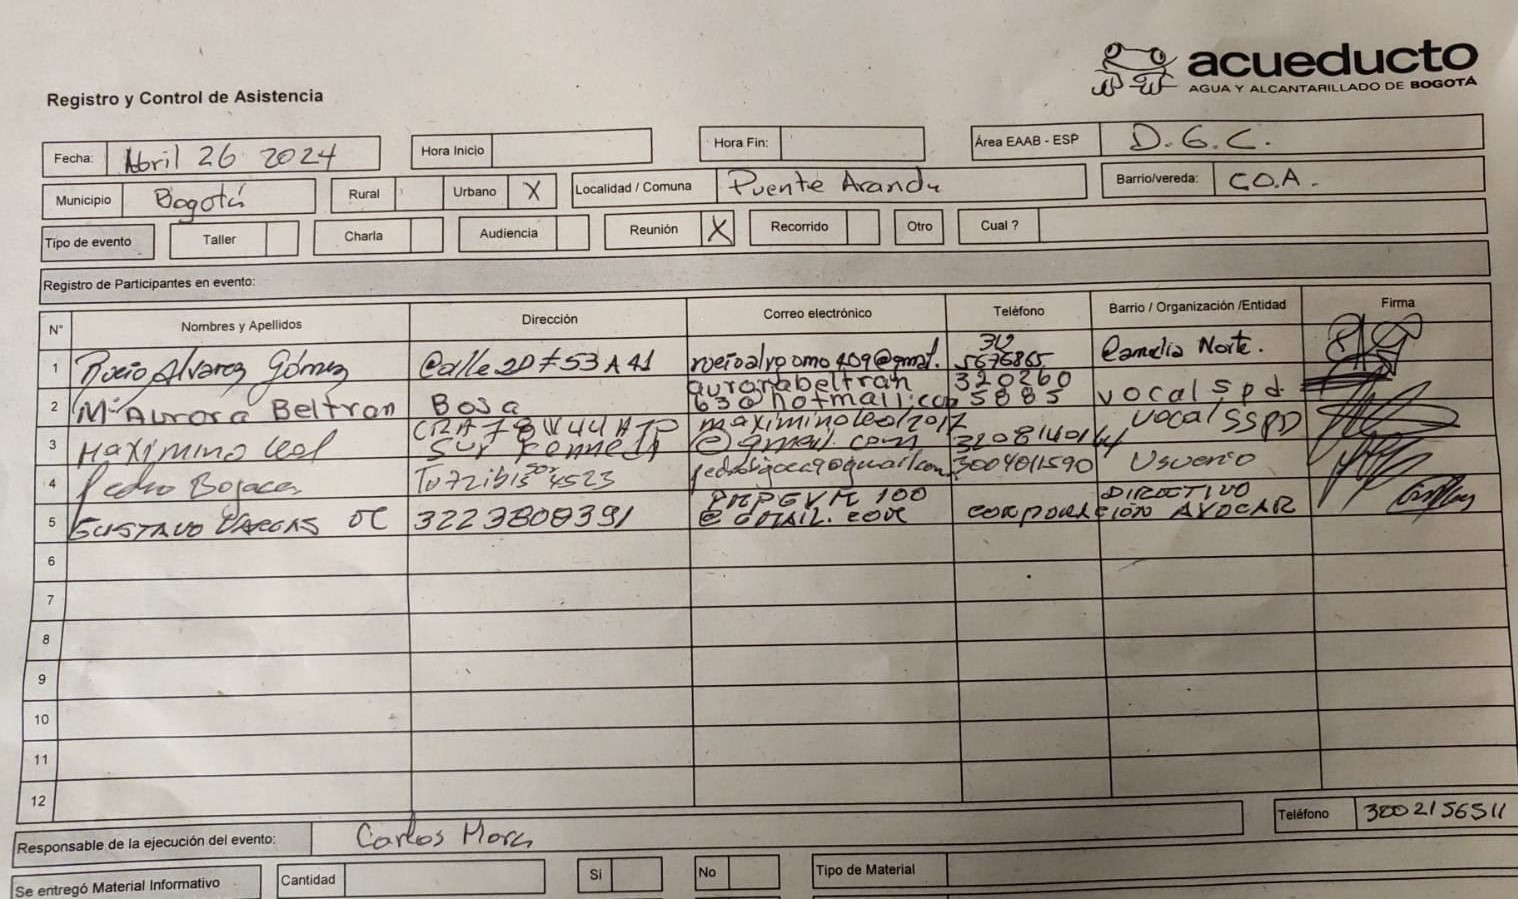 acueducto
AGUA Y ALCANTARILLADO DE BOGOTÁ
Registro y Control de Asistencia
Fecha: Abril 26 2024 Hora Inicio Hora Fin: Área EAAB - ESP D.G.C.
Municipio Bogotá Rural Urbano X Localidad / Comuna Puente Aranda Barrio/vereda: C.O.A.
Tipo de evento Taller Charla Audiencia Reunión X Recorrido Otro Cual ?
Registro de Participantes en evento:
N° Nombres y Apellidos Dirección Correo electrónico Teléfono Barrio / Organización /Entidad Firma
1 Rocio Alvarez Gómez Calle 2D #53 A 41 5676865 Camelia Norte.
2 Mª Aurora Beltran Bosa auronabeltran 63@hotmail.com 320260 5885 vocal s p d
3 Maximino leal CRA 78 sur Kennedy maximinoleal2017 @gmail.com vocal SSPD
4 Pedro Bojaca 3004011590 Usuerio
5 GUSTAVO VARGAS 3223808391 @ GMAIL. COM DIRECTIVO CORPORACION AVOCAR
6
7
8
9
10
11
12
Responsable de la ejecución del evento: Carlos Mora Teléfono 3002156511
Se entregó Material Informativo Cantidad Si No Tipo de Material